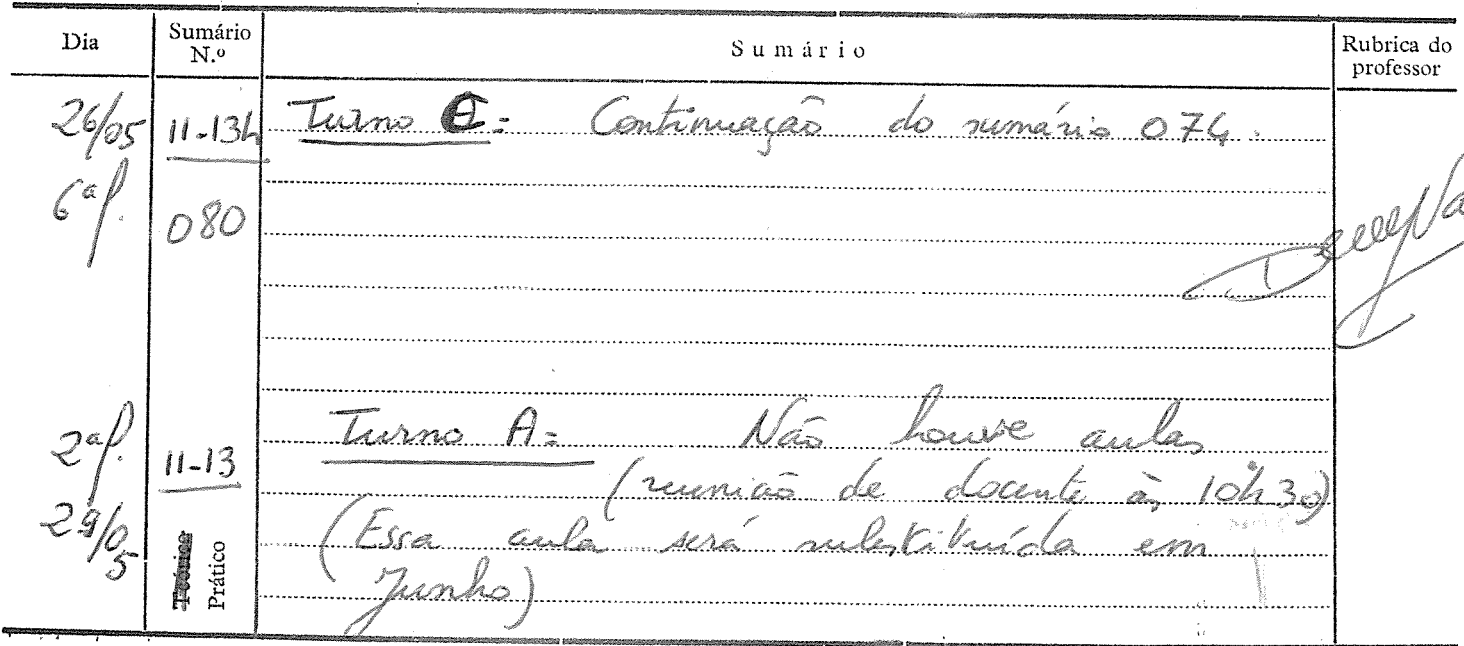 Dia Sumário N.º Sumário Rubrica do professor
26/05 11-13h Turno C: Continuação do sumário 074.
6ª f. 080
2ª f. 11-13 Turno A: Não houve aulas
(reunião de docente às 10h30)
29/05 (Essa aula será substituída em
Prático Junho)